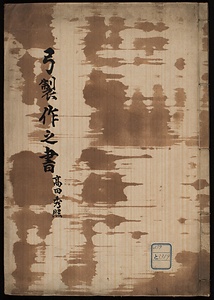 弓製作之書
高田秀照